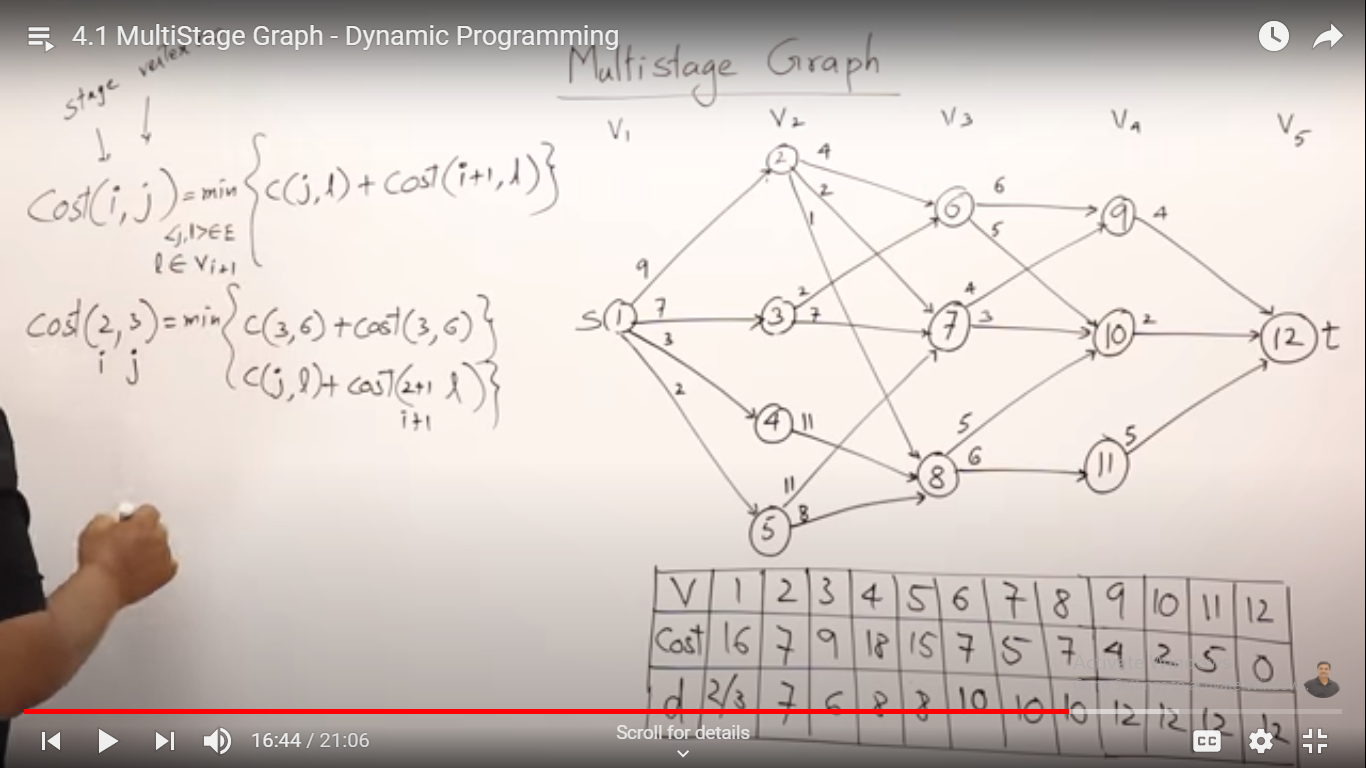 4.1 MultiStage Graph - Dynamic Programming
Multistage Graph
stage vertex
V1 V2 V3 V4 V5
Cost(i, j) = min { c(j, l) + cost(i+1, l) }
<j,l>∈E
l ∈ Vi+1
Cost(2, 3) = min { c(3,6) + cost(3,6) }
i j
{ c(j, l) + cost(2+1 l) }
i+1
S 1
2
3
4
5
6
7
8
9
10
11
12 t
9
7
3
2
4
2
1
2
7
11
11
8
6
5
4
3
5
6
4
2
5
V 1 2 3 4 5 6 7 8 9 10 11 12
Cost 16 7 9 18 15 7 5 7 4 2 5 0
d 2/3 7 6 8 8 10 10 10 12 12 12 12
16:44 / 21:06
Scroll for details
CC